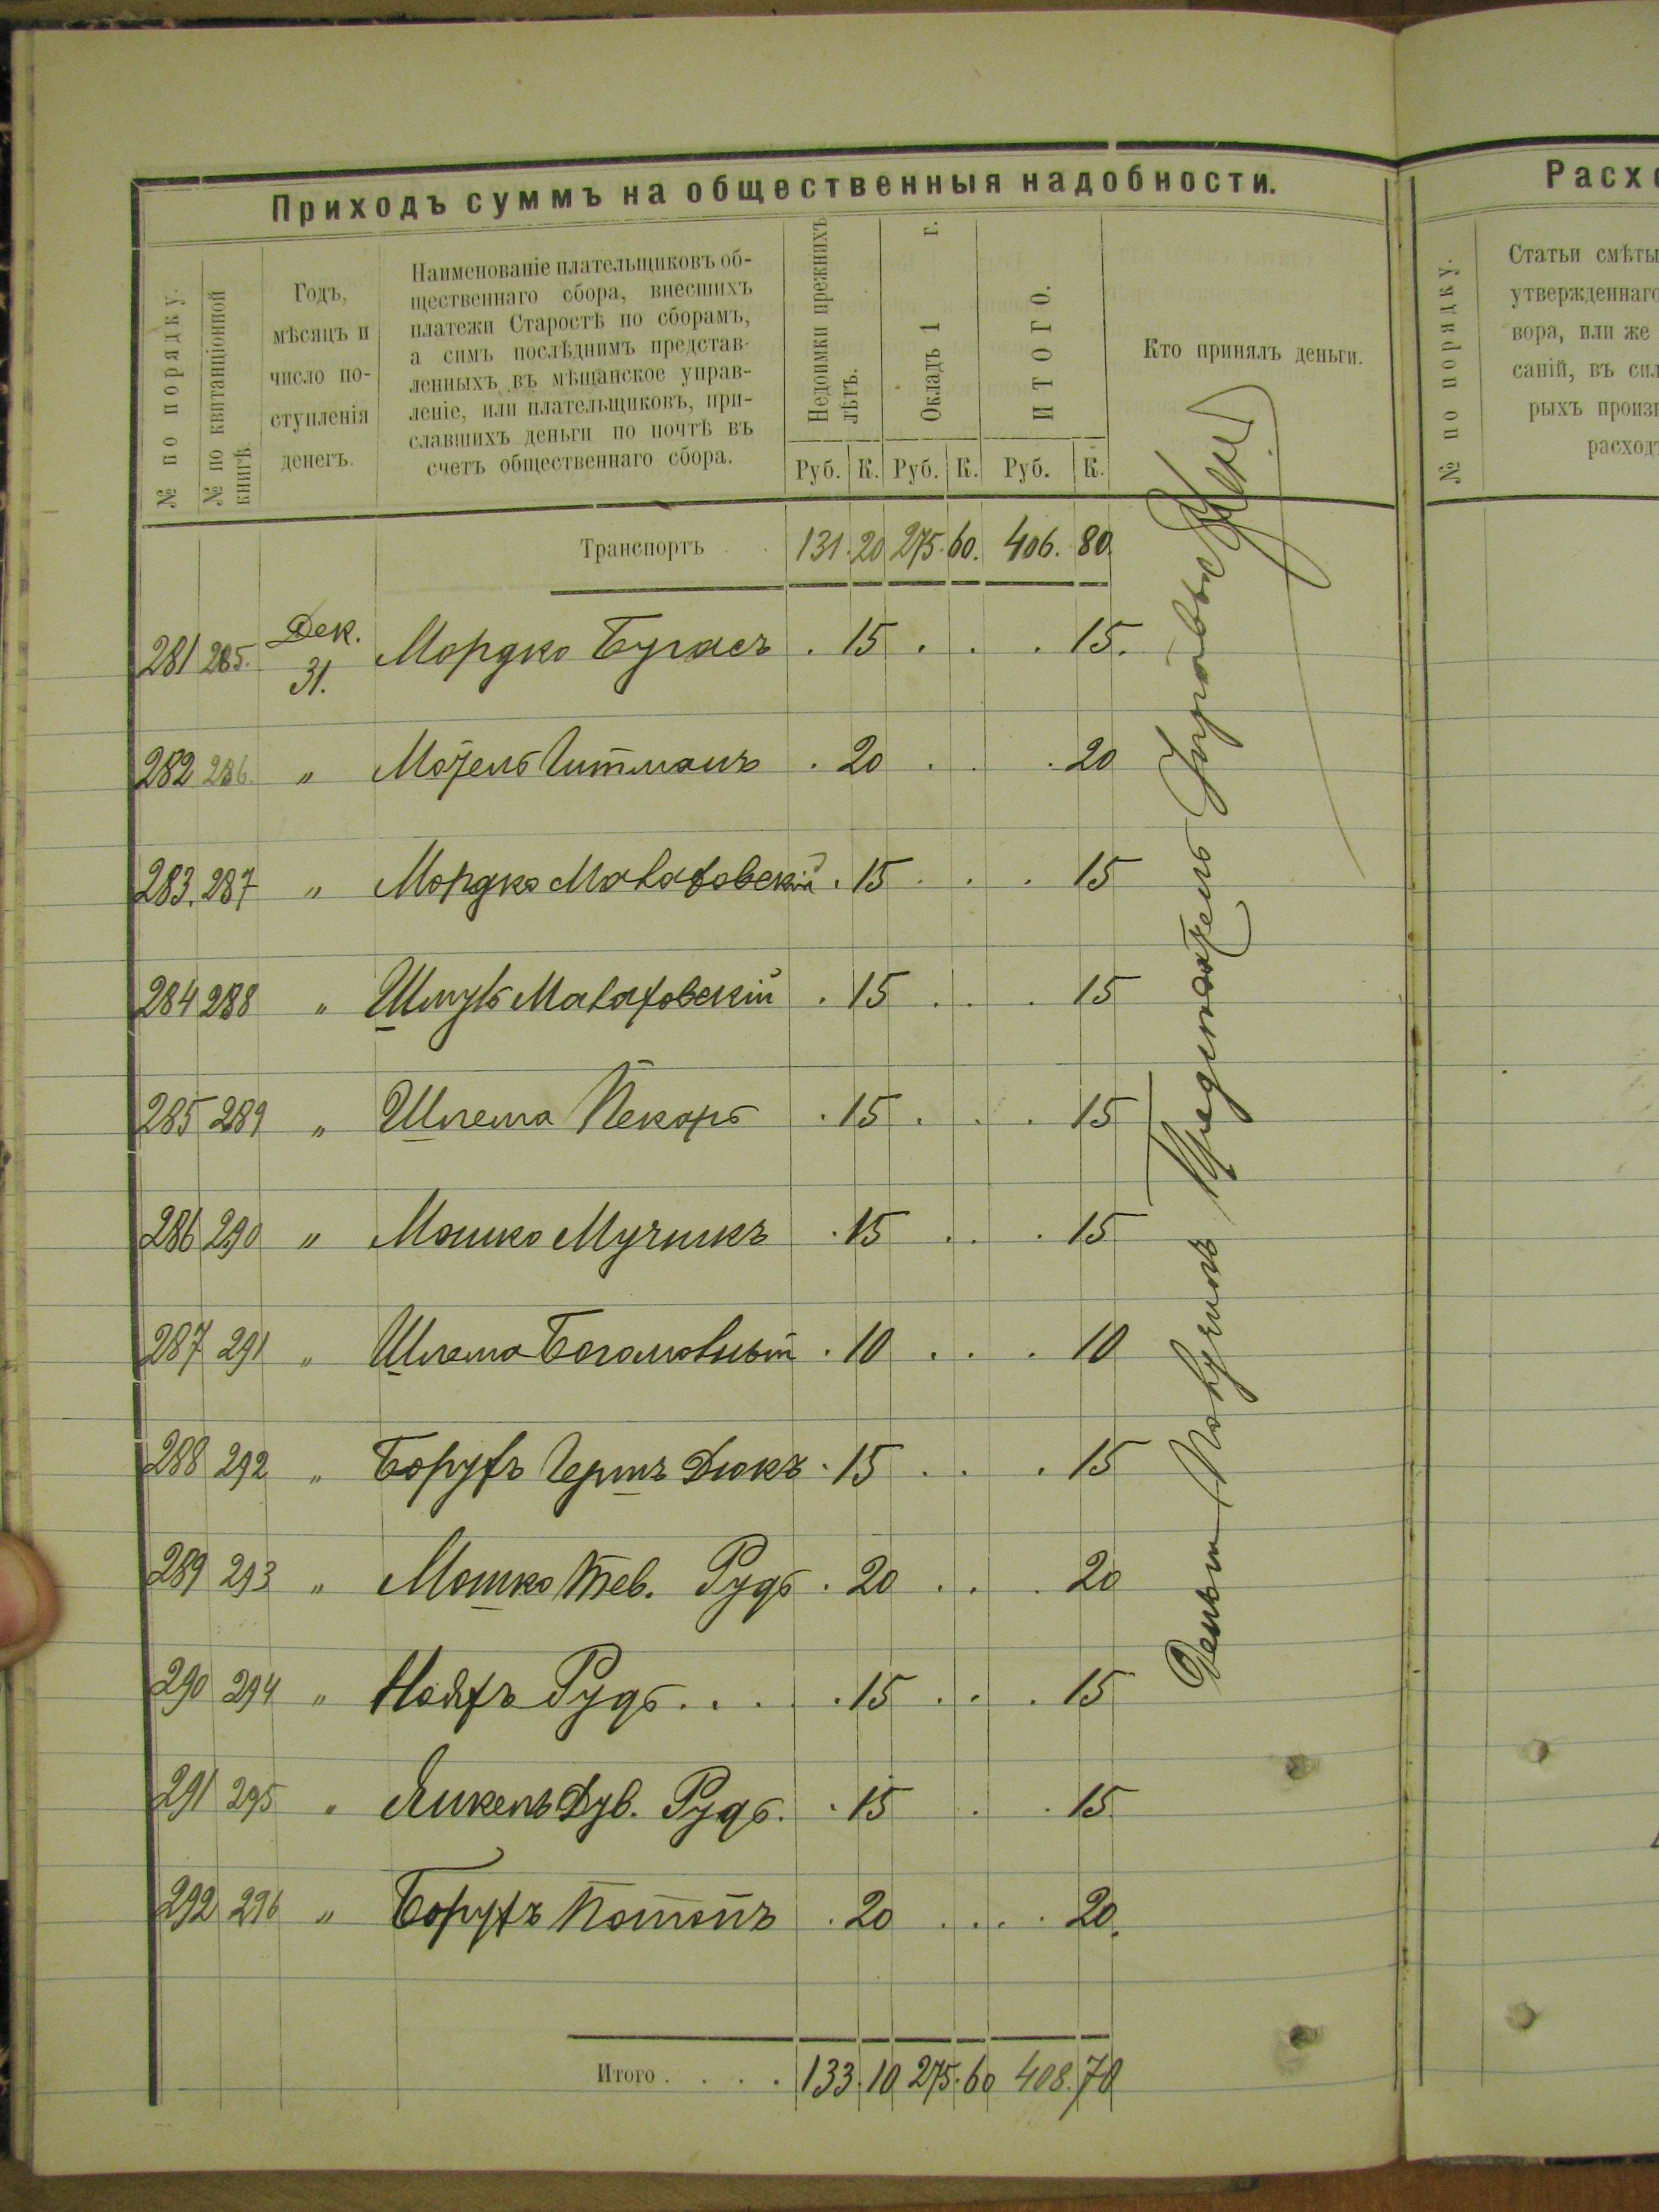 Приходъ суммъ на общественныя надобности.
№ по порядку.
№ по квитанціонной
книгѣ.
Годъ,
мѣсяцъ и
число по-
ступленія
денегъ.
Наименованіе плательщиковъ об-
щественнаго сбора, внесшихъ
платежи Старостѣ по сборамъ,
а симъ послѣднимъ представ-
ленныхъ въ мѣщанское управ-
леніе, или плательщиковъ, при-
славшихъ деньги по почтѣ въ
счетъ общественнаго сбора.
Недоимки прежнихъ
лѣтъ.
Окладъ 1 г.
ИТОГО.
Кто принялъ деньги.
Руб. К. Руб. К. Руб. К.
Транспортъ 131. 20 275. 60. 406. 80
281 285. Дек. 31. Мордко Бугаевъ . 15 . . . 15.
282 286. " Мотель Гитманъ . 20 . . 20
283. 287 " Мордко Малаховскій . 15 . . . 15
284 288 " Шмуль Малаховскій . 15 . . . 15
285 289 " Шлема Пекарь . 15 . . . 15
286 290 " Мошко Мучникъ . 15 . . . 15
287 291 " Шлема Богомольный . 10 . . . 10
288 292 " Борухъ Гершъ Дюкъ . 15 . . . 15
289 293 " Мошко Тев. Рудь . 20 . . . 20
290 294 " Нояхъ Рудь . . . . 15 . . . 15
291 295 " Янкель Дув. Рудь. . 15 . . 15
292 296 " Борухъ Потопъ . 20 . . . . 20.
Итого . . . . 133. 10 275. 60 408. 70
Деньги получилъ
Расхо
№ по порядку.
Статьи смѣты
утвержденнаго
вора, или же
саній, въ сил
рыхъ произв
расход